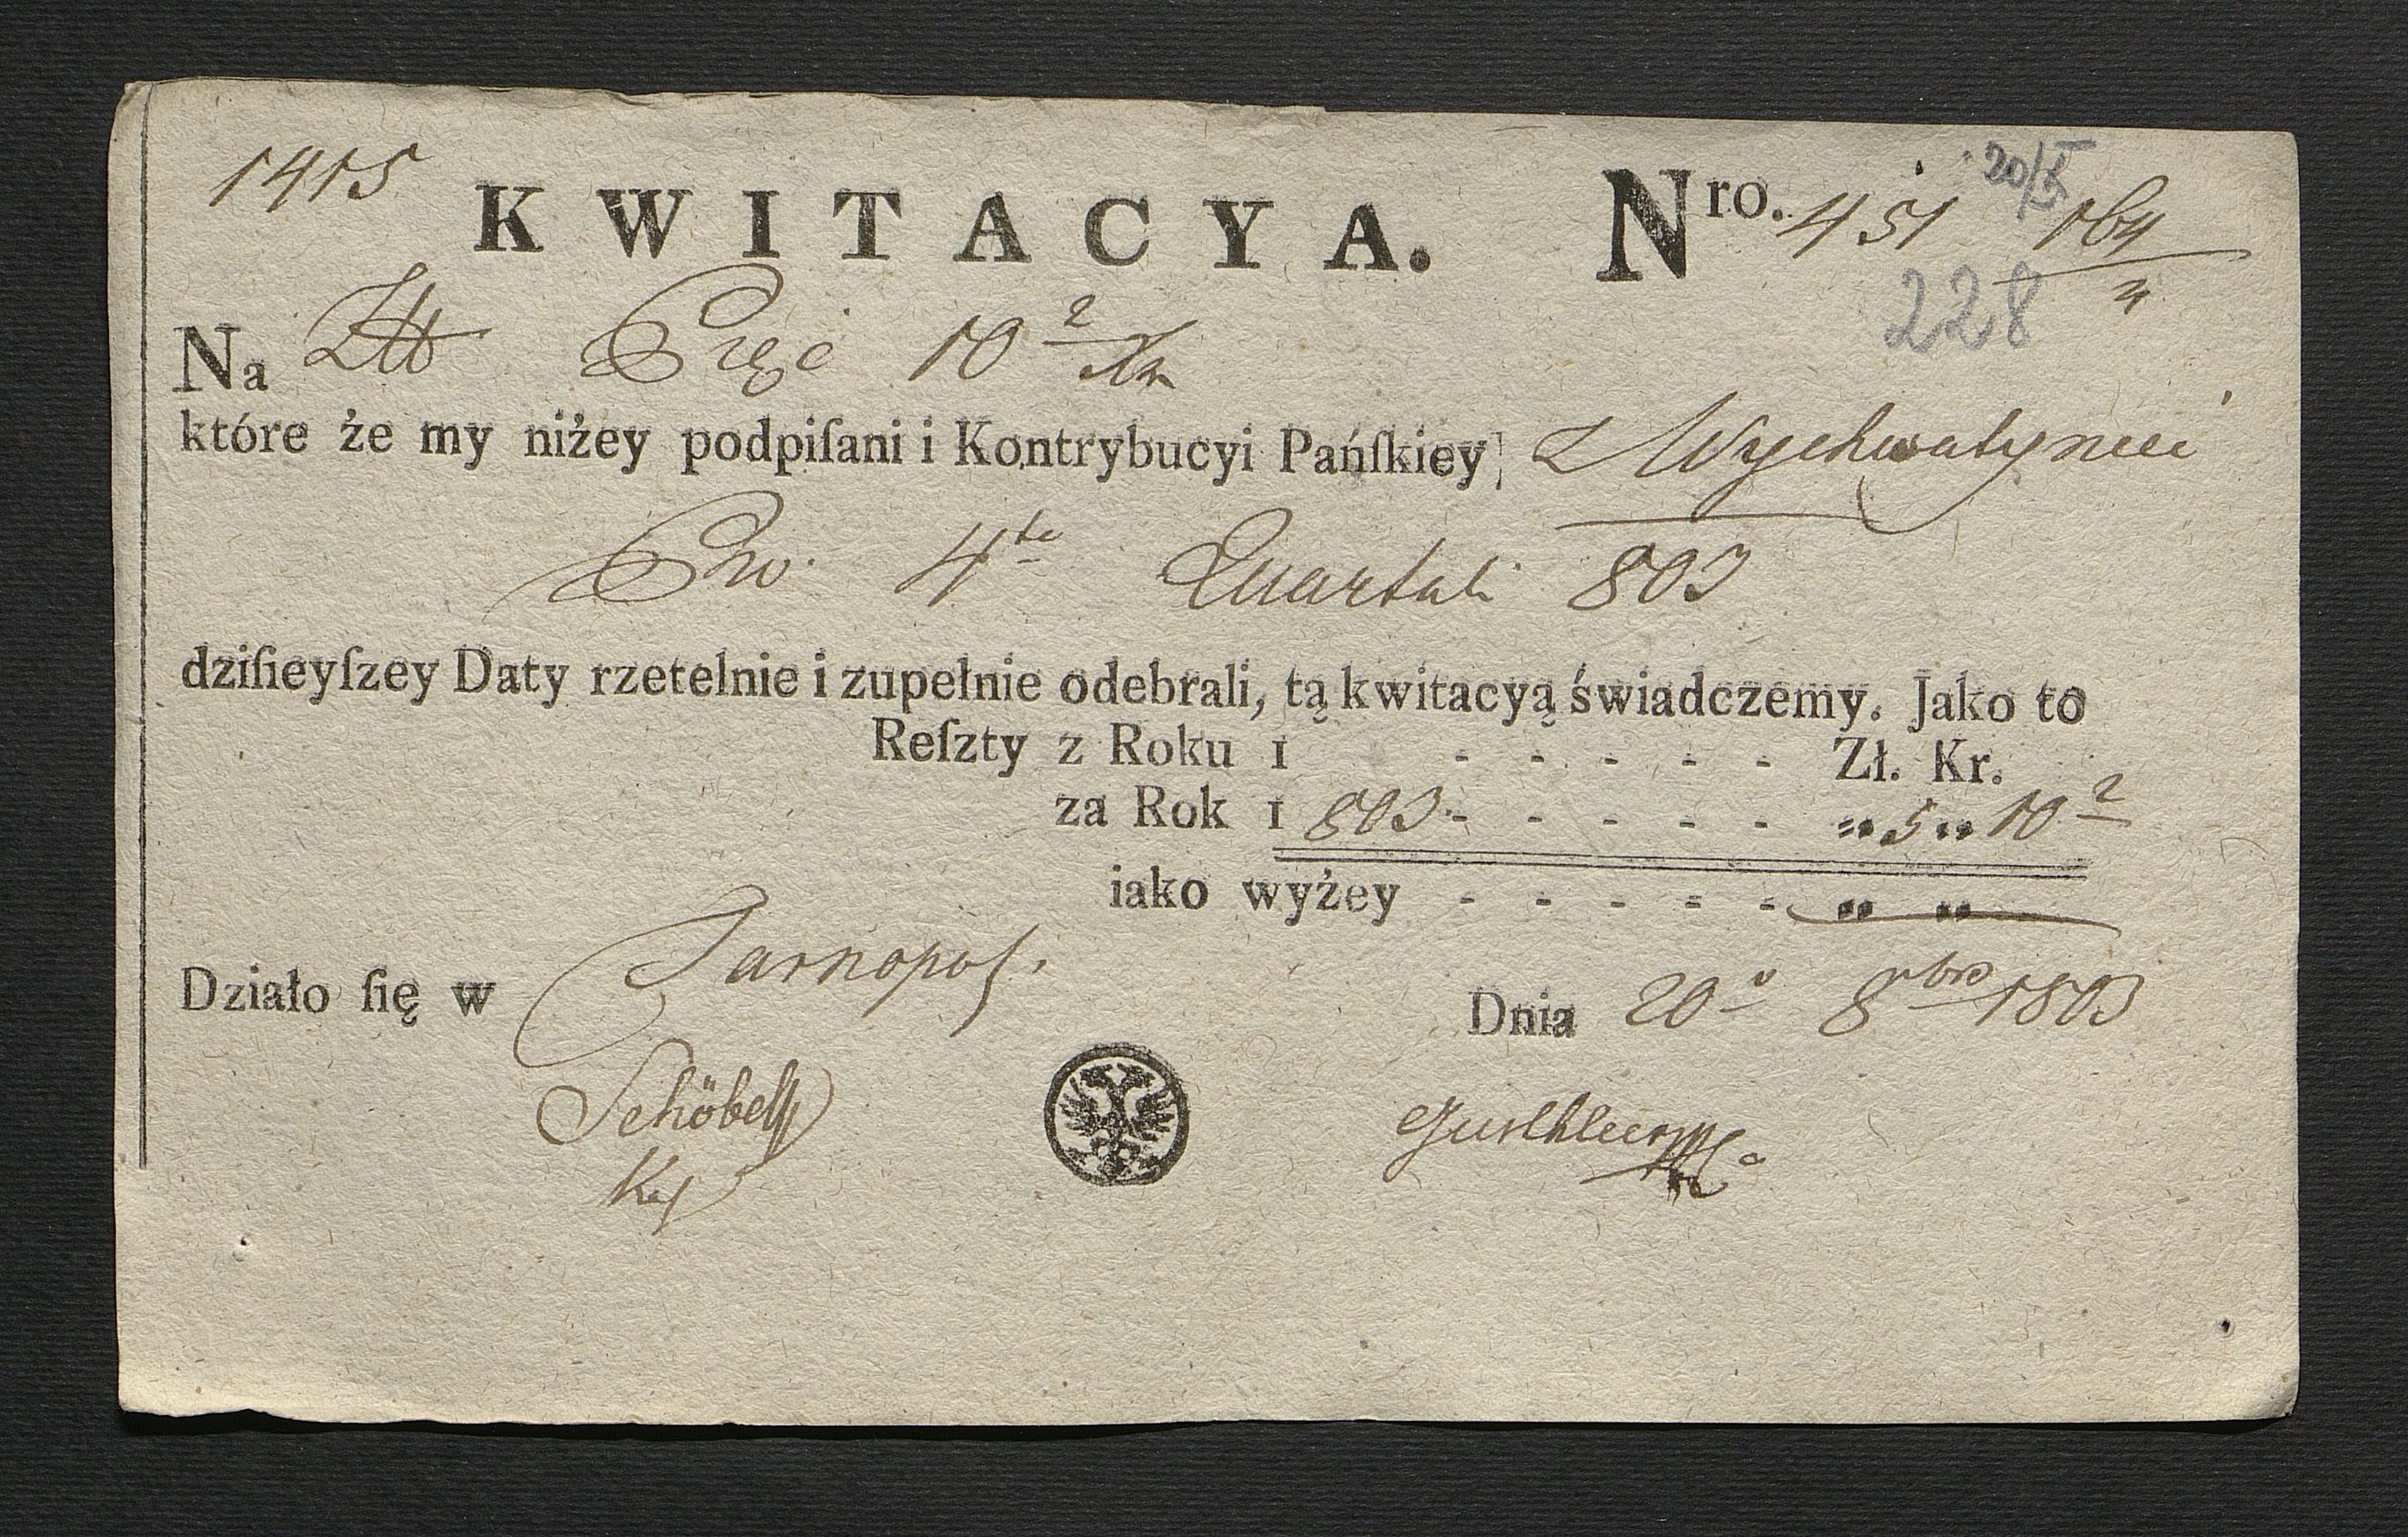 1415
KWITACYA. Nro. 451 164/4
20/5
228
Na Złł Pięć 10 2/4 Xr
które że my niżey podpiſani i Kontrybucyi Pańſkiey z Wychwatyniec
Pro 4te Quartali 803
dziſieyſzey Daty rzetelnie i zupełnie odebrali, tą kwitacyą świadczemy. Jako to
Reſzty z Roku 1 - - - - - Zł. Kr.
za Rok 1803 - - - - - „ 5 „ 10 2
iako wyżey - - - - - „ „
Działo ſię w Tarnopol. Dnia 20o 8bro 1803
Schöbel